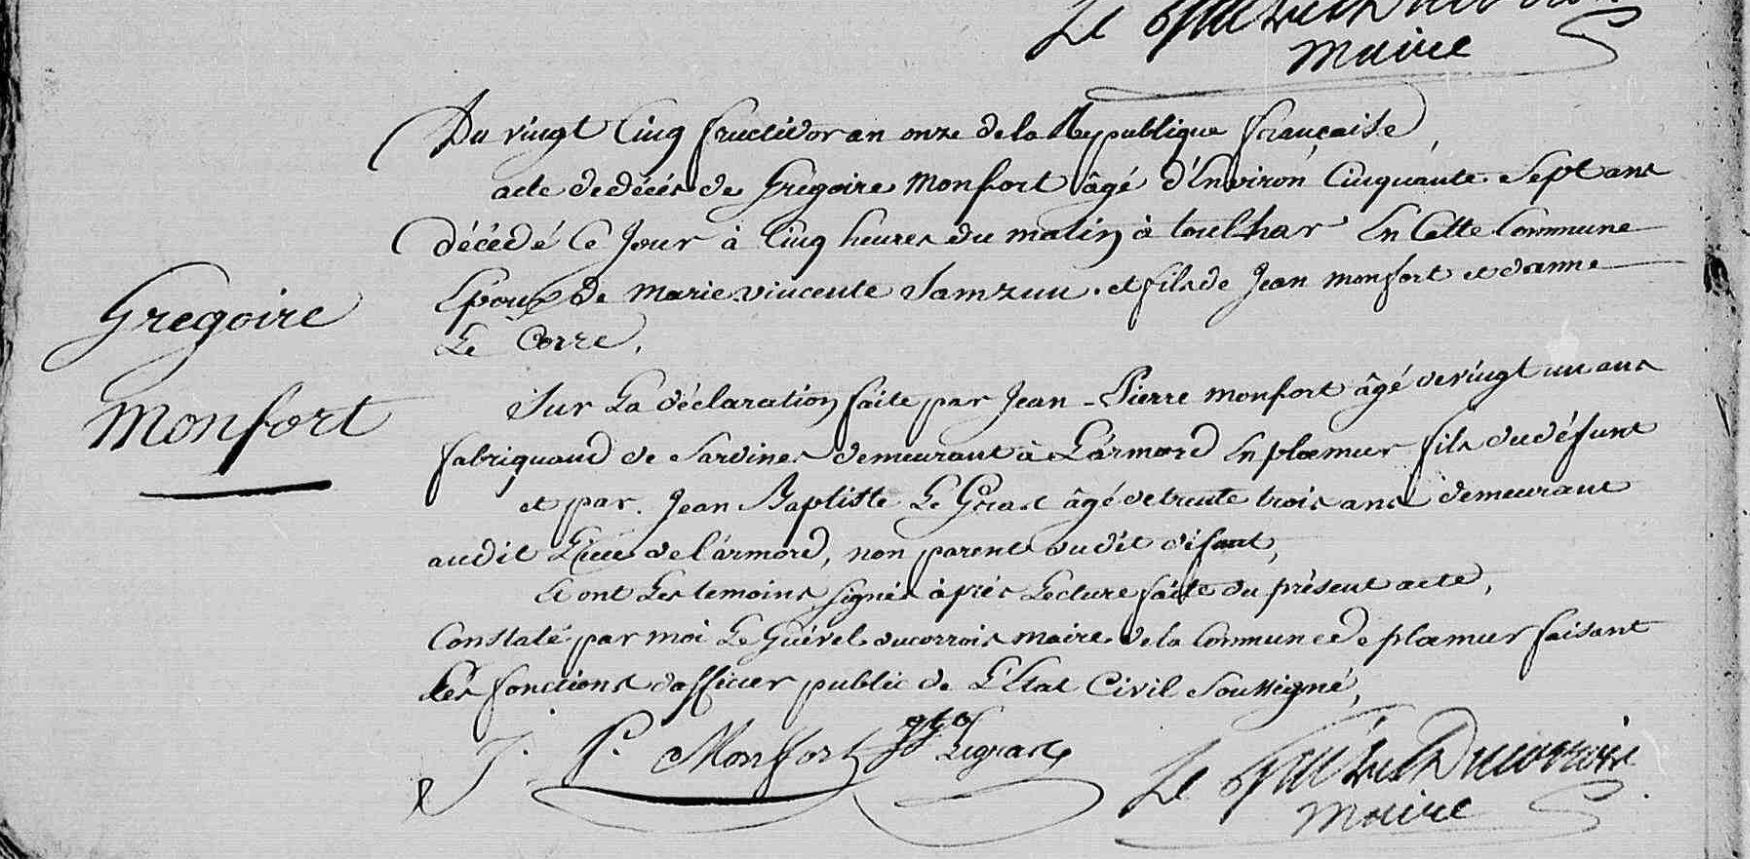 Le Guével Ducorrois
maire
Du vingt Cinq fructidor an onze de la Republique française,
acte de décés de Grégoire Monfort âgé d'Environ Cinquante Sept ans
décédé Ce Jour à Cinq heures du matin à toulhar En Cette Commune
Epoux de Marie vincente Samzun. et fils de Jean Monfort et d'anne
Le Corre.
Gregoire
Monfort
Sur La déclaration faite par Jean-Pierre Monfort âgé de vingt un ans
fabriquand de Sardines demeurant à L'armord En ploemur fils du défunt
et par Jean Baptiste Le Gras âgé de trente trois ans demeurant
audit Lieu de l'armord, non parent dudit défunt,
Et ont Les temoins signés àprés Lecture faite du présent acte,
Constaté par moi Le Guével ducorrois maire de la Commune de ploemur faisant
Les fonctions d'officier public de L'Etat Civil Soussigné,
J. P. Monfort Legras
Le Guével Ducorrois
maire